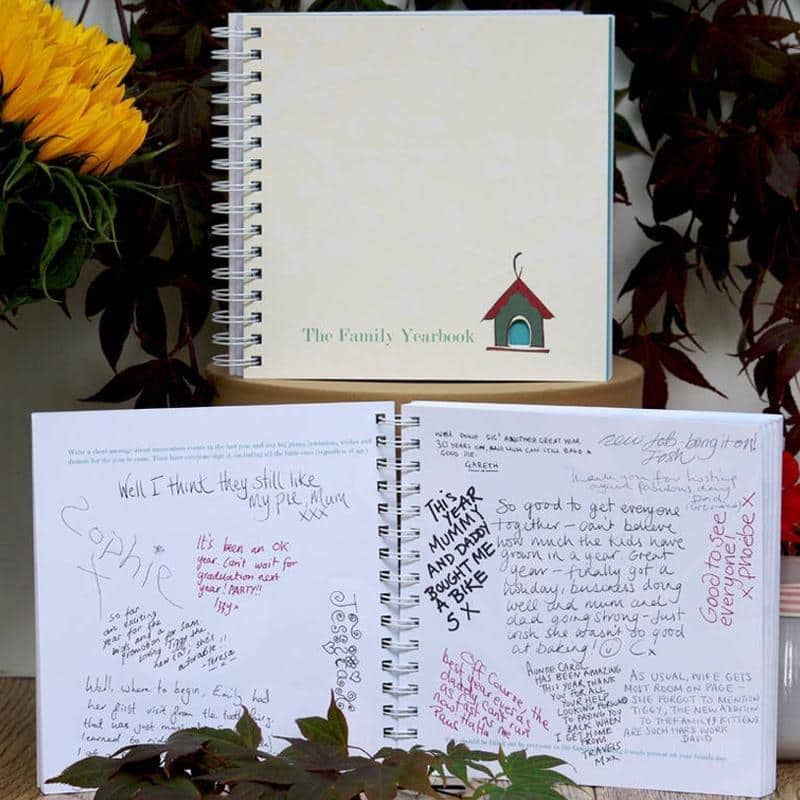 The Family Yearbook
Write a short message about momentous events in the last year and any big plans, resolutions, wishes and
dreams for the year to come. Then have everyone sign it, including all the little ones (regardless of age!)
Well I think they still like
my pie, Mum
xxx
Sophie
x
It's been an OK
year. Can't wait for
graduation next
year! PARTY!!
Izzy x
so far
an exciting
year for the
with and a
promotion for Sam
loving Tiggy the
new cat, she's
adorable!
-Teresa
Jessica
Well, where to begin, Emily had
her first visit from the tooth fairy
that was just
learned to
WELL DONE SIS! ANOTHER GREAT YEAR.
30 YEARS ON, AND MUM CAN STILL BAKE A
GOOD PIE.
GARETH
new job - bring it on!
Josh
Thank you for hosting
again fabulous day
David
THIS
YEAR
MUMMY
AND DADDY
BOUGHT ME
A BIKE
S X
So good to get everyone
together - can't believe
how much the kids have
grown in a year. Great
year - finally got a
holiday, business doing
well and mum and
dad going strong - just
wish she wasn't so good
at baking! Cx
Good to see
everyone!
x Phoebe x
Off Course, the
best year ever as
daddy can't
as
just ask me
Paul Haha
AUNTIE CAROL
HAS BEEN AMAZING
THIS YEAR THANK
YOU FOR ALL
YOUR HELP
LOOKING FORWARD
TO PAYING YOU
BACK WHEN
I GET HOME
FROM
TRAVELS
Mxx
AS USUAL, WIFE GETS
MOST ROOM ON PAGE -
SHE FORGOT TO MENTION
TIGGY, THE NEW ADDITION
TO THE FAMILY! KITTENS
ARE SUCH HARD WORK
DAVID
should be filled out by everyone in the family